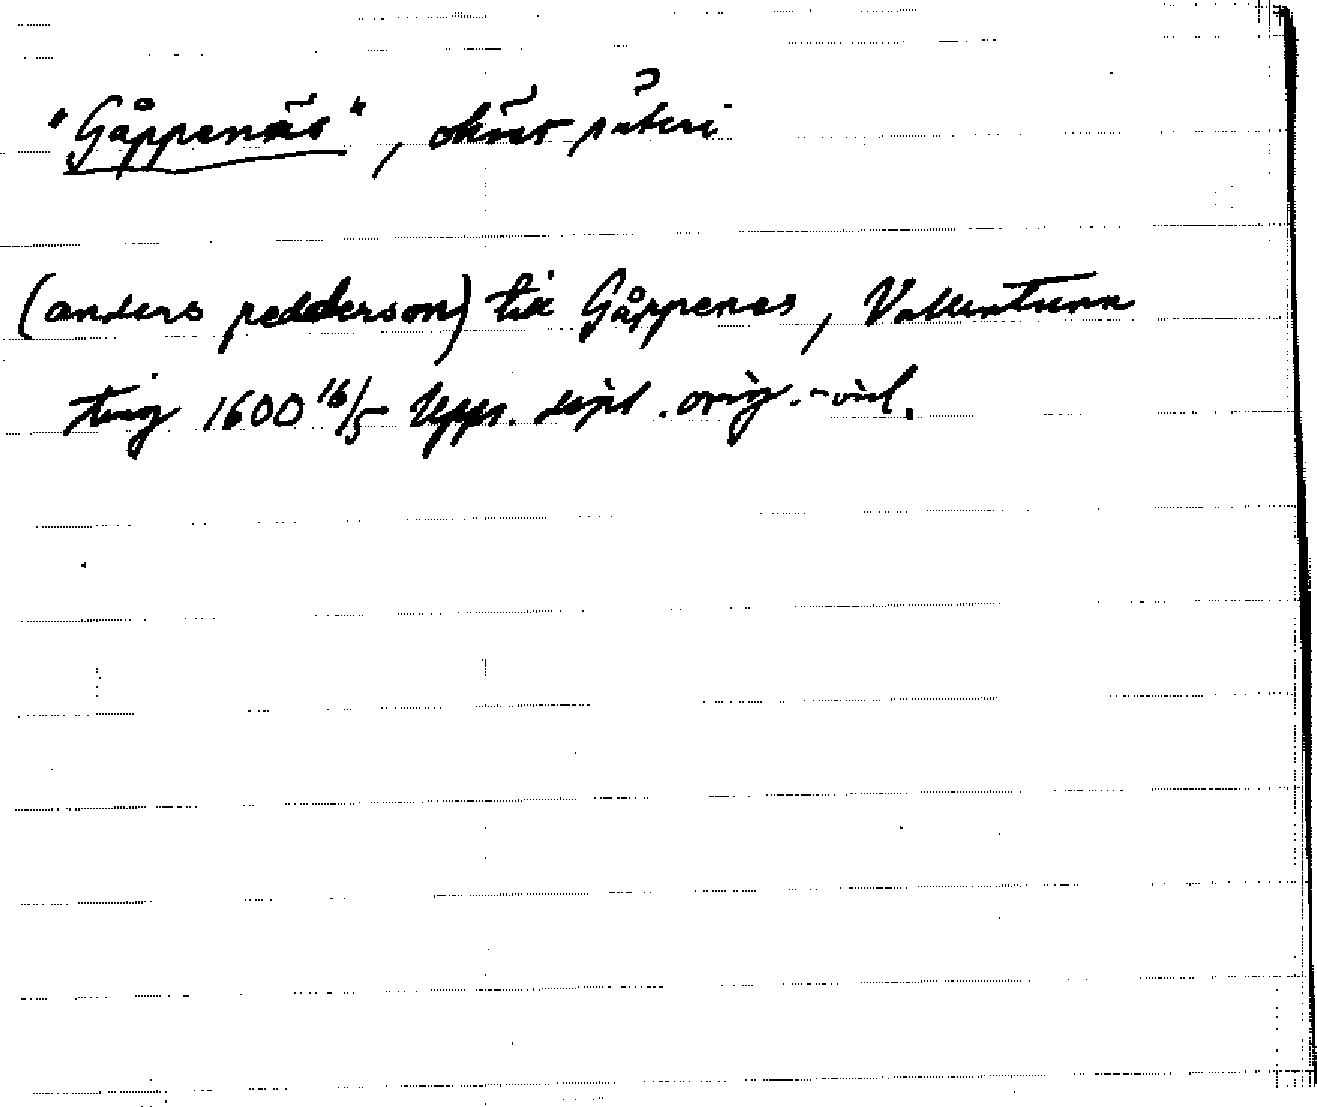 "Gåppenäs", okänt säteri
(anders pedderson) till Gåppenes, Vallentuna
ting 1600 16/5 Upps. dipl. orig.-vid.